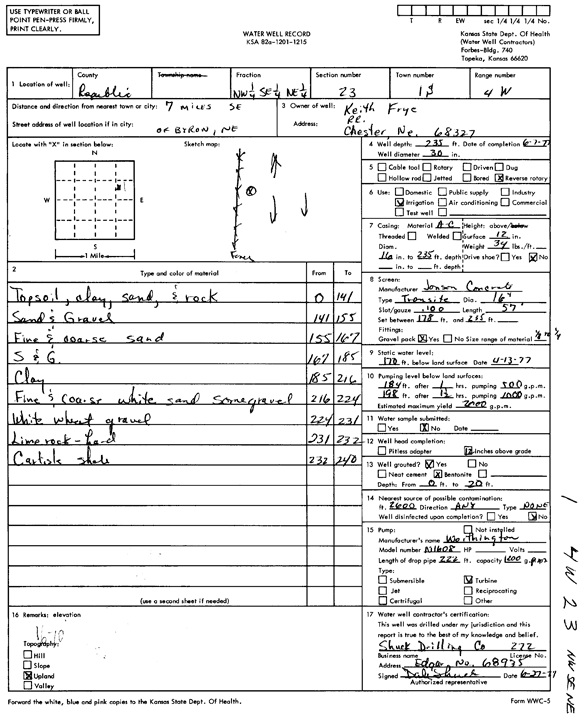 USE TYPEWRITER OR BALL
POINT PEN-PRESS FIRMLY,
PRINT CLEARLY.
WATER WELL RECORD
KSA 82a-1201-1215
T R EW sec 1/4 1/4 1/4 No.
Kansas State Dept. Of Health
(Water Well Contractors)
Forbes-Bldg. 740
Topeka, Kansas 66620
1 Location of well: County Republic Township name Fraction NW¼ SE¼ NE¼ Section number 23 Town number 1S Range number 4 W
Distance and direction from nearest town or city: 7 MILES SE
Street address of well location if in city: OF BYRON, NE
3 Owner of well: Keith Frye
Address: RR.
Chester, Ne. 68327
Locate with "X" in section below: Sketch map:
N
W E
S
1 Mile
4 Well depth: 235 ft. Date of completion 6-7-77
Well diameter 30 in.
5 Cable tool Rotary Driven Dug
Hollow rod Jetted Bored X Reverse rotary
6 Use: Domestic Public supply Industry
Irrigation Air conditioning Commercial
Test well
7 Casing: Material A-C Height: above/below
Threaded Welded Surface 12 in.
Diam. Weight 34 lbs./ft.
16 in. to 235 ft. depth Drive shoe? Yes X No
in. to ft. depth
2 Type and color of material From To
Topsoil, clay, sand, & rock 0 141
Sand & Gravel 141 155
Fine & coarse sand 155 167
S & G. 167 185
Clay 185 216
Fine & coarse white sand some gravel 216 224
White wheat gravel 224 231
Lime rock - hard 231 232
Carlisle shale 232 240
(use a second sheet if needed)
8 Screen:
Manufacturer Jonson Concrete
Type Transite Dia. 16"
Slot/gauze .100 Length 57'
Set between 178 ft. and 235 ft.
Fittings:
Gravel pack X Yes No Size range of material
9 Static water level:
170 ft. below land surface Date 4-13-77
10 Pumping level below land surfaces:
184 ft. after 1 hrs. pumping 500 g.p.m.
198 ft. after 12 hrs. pumping 1000 g.p.m.
Estimated maximum yield 2000 g.p.m.
11 Water sample submitted:
Yes X No Date
12 Well head completion:
Pitless adapter 12 Inches above grade
13 Well grouted? Yes No
Neat cement X Bentonite
Depth: From 0 ft. to 20 ft.
14 Nearest source of possible contamination:
ft. 2600 Direction ANY Type NONE
Well disinfected upon completion? Yes No
15 Pump: Not installed
Manufacturer's name Worthington
Model number HP Volts
Length of drop pipe 222 ft. capacity 1200 g.p.m.
Type:
Submersible Turbine
Jet Reciprocating
Centrifugal Other
16 Remarks: elevation
Topography:
Hill
Slope
X Upland
Valley
17 Water well contractor's certification:
This well was drilled under my jurisdiction and this
report is true to the best of my knowledge and belief.
Shuck Drilling Co 272
Business name License No.
Address Edgar, Ne. 68935
Signed Dale Shuck Date 6-27-77
Authorized representative
Forward the white, blue and pink copies to the Kansas State Dept. Of Health.
Form WWC-5
1 4 W 23 NW SE NE